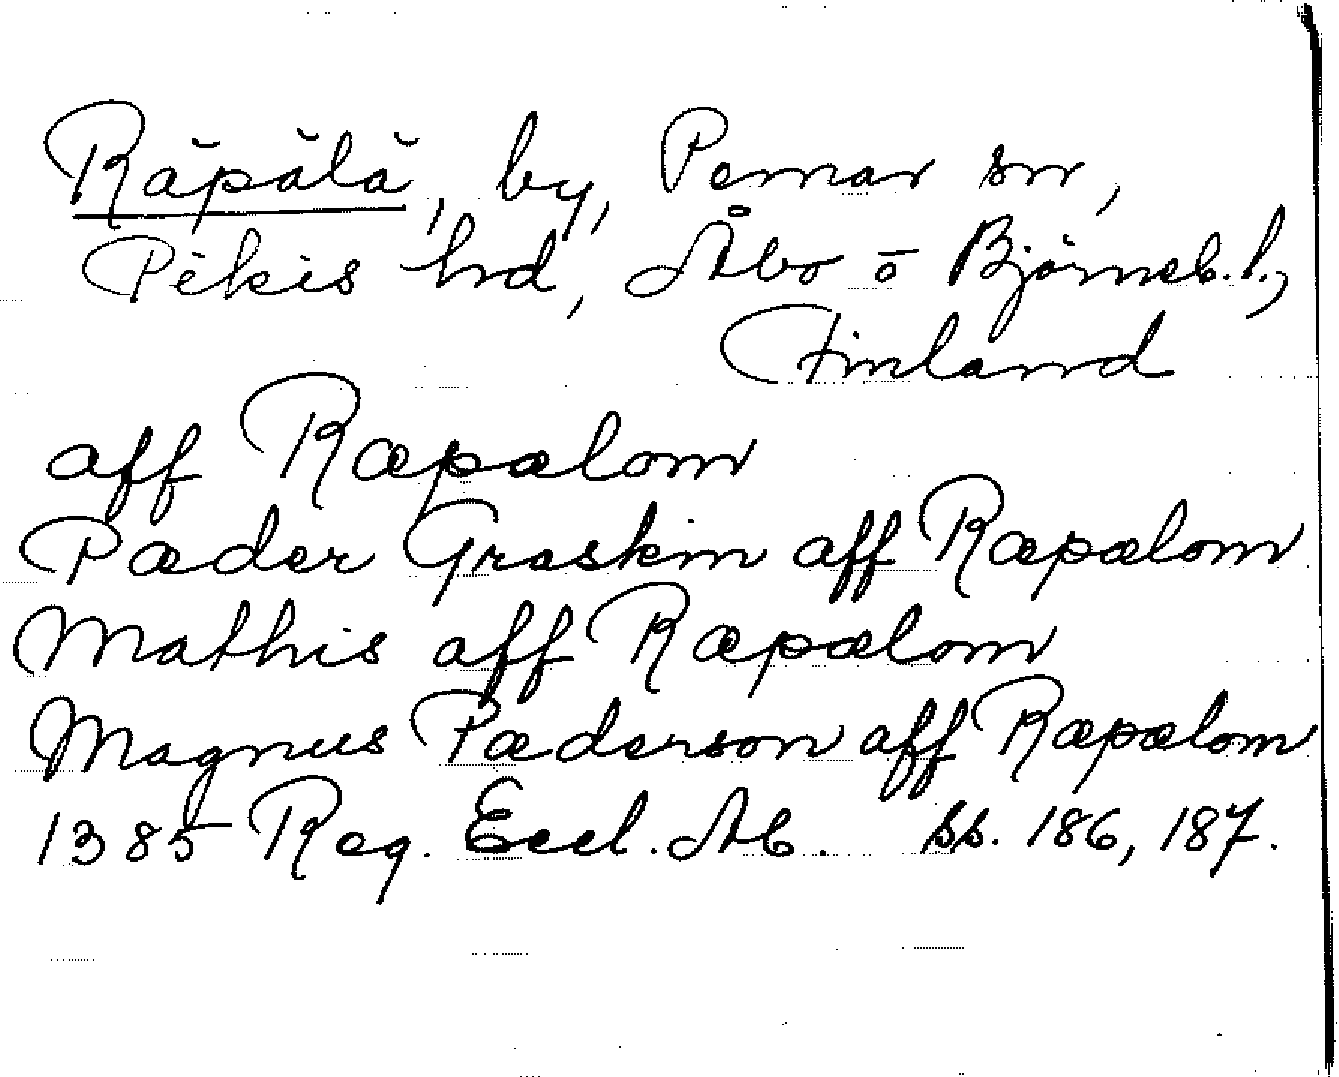 Räpälä, by, Pemar sn,
Pikis hd, Åbo o Björneb. l.,
Finland
aff Ræpælom
Pæder Graskin aff Ræpælom
Mathis aff Ræpælom
Magnus Pæderson aff Ræpælom
1385 Reg. Eccl. Ab. ss. 186, 187.